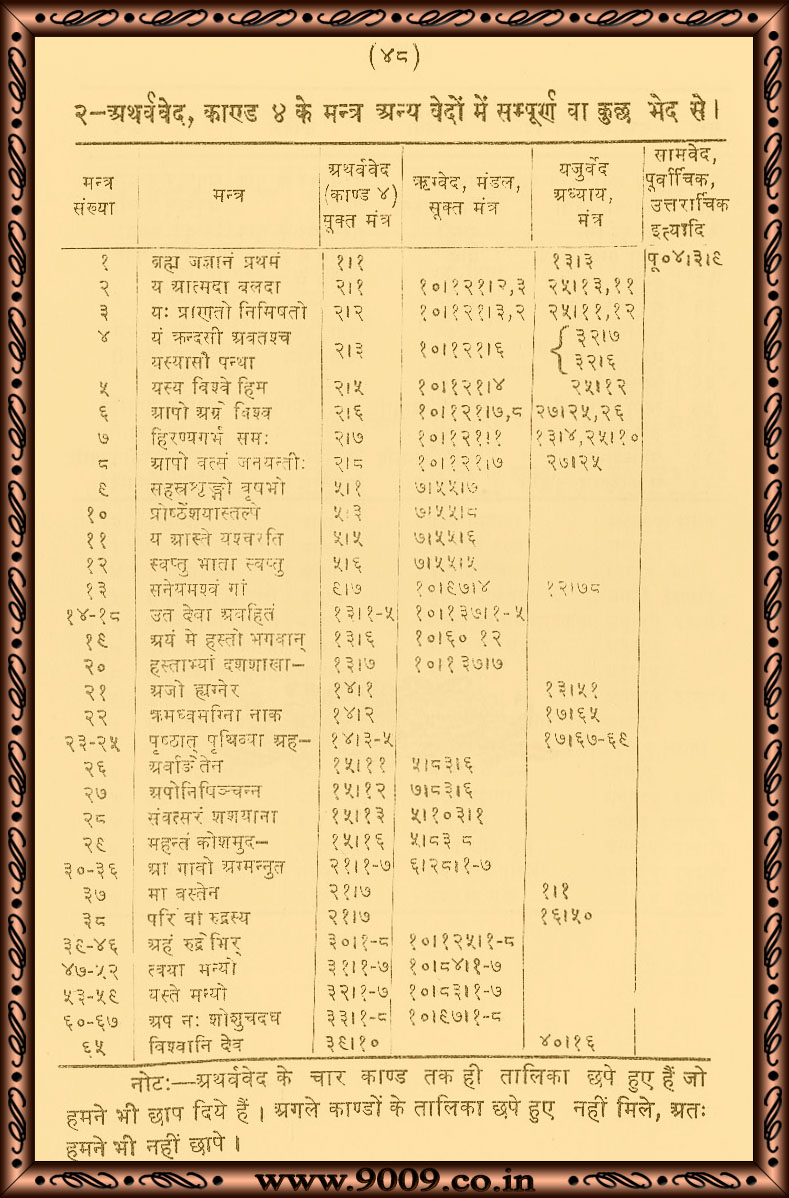 (४८)
२-अथर्ववेद, काण्ड ४ के मन्त्र अन्य वेदों में सम्पूर्ण वा कुछ भेद से।
मन्त्र संख्या | मन्त्र | अथर्ववेद (काण्ड ४) सूक्त मंत्र | ऋग्वेद, मंडल, सूक्त मंत्र | यजुर्वेद अध्याय, मंत्र | सामवेद, पूर्वार्चिक, उत्तरार्चिक इत्यादि
१ ब्रह्म जज्ञानं प्रथमं १।१ १३।३ पू०४।३।९
२ य आत्मदा बलदा २।१ १०।१२१।२,३ २५।१३,११
३ यः प्राणतो निमिषतो २।२ १०।१२१।३,२ २५।११,१२
४ यं क्रन्दसी अवतश्च यस्यासौ पन्था २।३ १०।१२१।६ ३२।७ ३२।६
५ यस्य विश्वे हिम २।५ १०।१२१।४ २५।१२
६ आपो अग्रे विश्व २।६ १०।१२१।७,८ २७।२५,२६
७ हिरण्यगर्भ समः २।७ १०।१२१।१ १३।४,२५।१०
८ आपो वत्सं जनयन्तीः २।८ १०।१२१।७ २७।२५
९ सहस्रशृङ्गो वृषभो ५।१ ७।५५।७
१० प्रोष्ठेशयास्तल्पे ५।३ ७।५५।८
११ य आस्ते यश्चरति ५।५ ७।५५।६
१२ स्वप्तु भाता स्वप्तु ५।६ ७।५५।५
१३ सनेयमश्वं गां ९।७ १०।९७।४ १२।७८
१४-१८ उत देवा अवहितं १३।१-५ १०।१३७।१-५
१९ अयं मे हस्तो भगवान् १३।६ १०।६० १२
२० हस्ताभ्यां दशशाखा- १३।७ १०।१३७।७
२१ अजो ह्यग्नेर १४।१ १३।५१
२२ क्रमध्वमग्निना नाक १४।२ १७।६५
२३-२५ पृष्ठात् पृथिव्या अह- १४।३-५ १७।६७-६९
२६ अर्वाङेतेन १५।११ ५।८३।६
२७ अपोनिषिञ्चन्न १५।१२ ७।८३।६
२८ संवत्सरं शशयाना १५।१३ ५।१०३।१
२९ महन्तं कोशमुद- १५।१६ ५।८३ ८
३०-३६ आ गावो अग्मन्नुत २१।१-७ ६।२८।१-७
३७ मा वस्तेन २१।७ १।१
३८ परि वो रुद्रस्य २१।७ १६।५०
३९-४६ अहं रुद्रेभिर् ३०।१-८ १०।१२५।१-८
४७-५२ त्वया मन्यो ३१।१-७ १०।८४।१-७
५३-५९ यस्ते मन्यो ३२।१-७ १०।८३।१-७
६०-६७ अप नः शोशुचदघ ३३।१-८ १०।९७।१-८
६५ विश्वानि देव ३९।१० ४०।१६
नोटः—अथर्ववेद के चार काण्ड तक ही तालिका छपे हुए हैं जो
हमने भी छाप दिये हैं। अगले काण्डों के तालिका छपे हुए नहीं मिले, अतः
हमने भी नहीं छापे।
www.9009.co.in